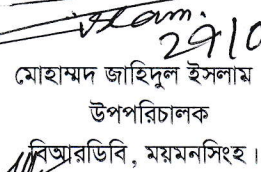 29/0
মোহাম্মদ জাহিদুল ইসলাম
উপপরিচালক
বিআরডিবি, ময়মনসিংহ।